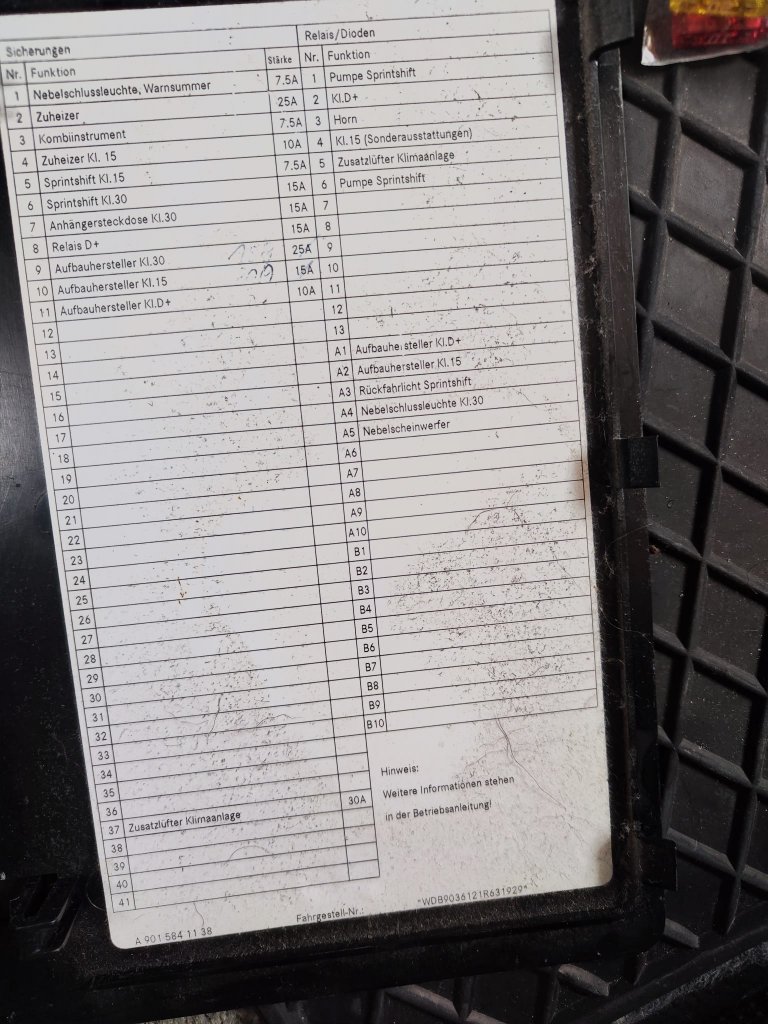 Sicherungen
Nr. Funktion Stärke
1 Nebelschlussleuchte, Warnsummer 7.5A
2 Zuheizer 25A
3 Kombiinstrument 7.5A
4 Zuheizer Kl. 15 10A
5 Sprintshift Kl.15 7.5A
6 Sprintshift Kl.30 15A
7 Anhängersteckdose Kl.30 15A
8 Relais D+ 15A
9 Aufbauhersteller Kl.30 25A
10 Aufbauhersteller Kl.15 15A
11 Aufbauhersteller Kl.D+ 10A
12
13
14
15
16
17
18
19
20
21
22
23
24
25
26
27
28
29
30
31
32
33
34
35
36
37 Zusatzlüfter Klimaanlage 30A
38
39
40
41
Relais/Dioden
Nr. Funktion
1 Pumpe Sprintshift
2 Kl.D+
3 Horn
4 Kl.15 (Sonderausstattungen)
5 Zusatzlüfter Klimaanlage
6 Pumpe Sprintshift
7
8
9
10
11
12
13
A1 Aufbauhersteller Kl.D+
A2 Aufbauhersteller Kl.15
A3 Rückfahrlicht Sprintshift
A4 Nebelschlussleuchte Kl.30
A5 Nebelscheinwerfer
A6
A7
A8
A9
A10
B1
B2
B3
B4
B5
B6
B7
B8
B9
B10
Hinweis:
Weitere Informationen stehen
in der Betriebsanleitung!
A 901 584 11 38
Fahrgestell-Nr.: *WDB9036121R631929*